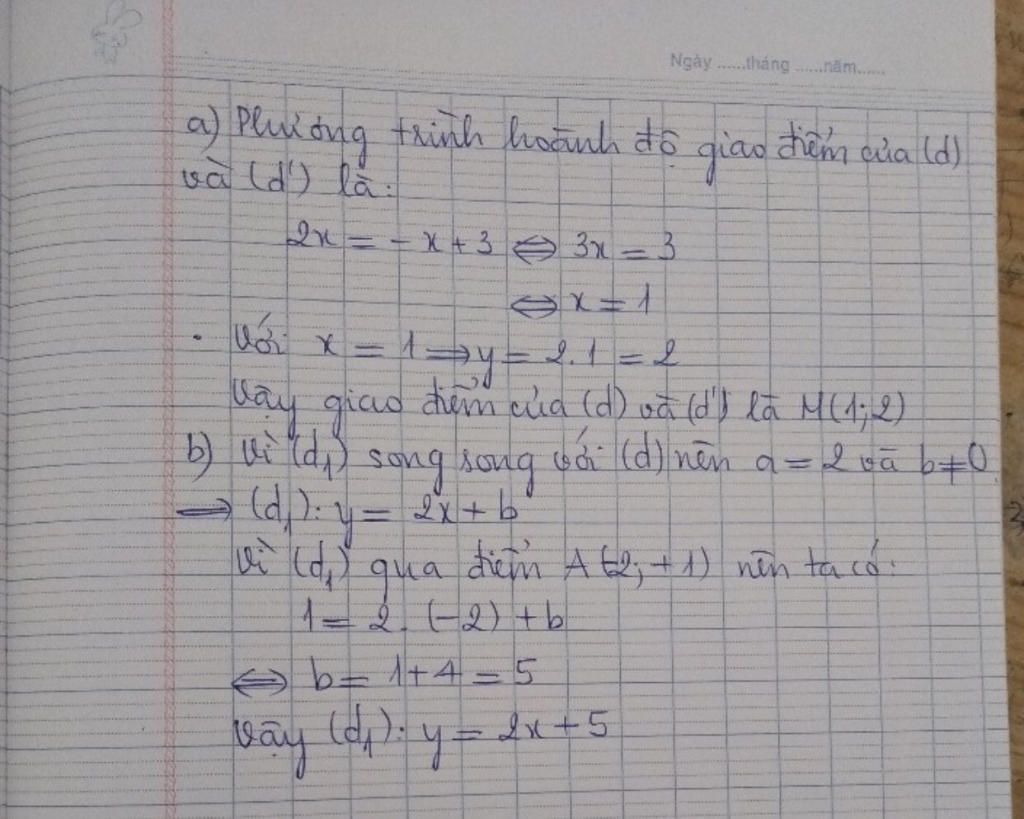 Ngày ......tháng ......năm......
a) Phương trình hoành độ giao điểm của (d)
và (d') là:
2x = - x + 3 ⇔ 3x = 3
⇔ x = 1
Với x = 1 ⇒ y = 2.1 = 2
Vậy giao điểm của (d) và (d') là M(1;2)
b) Vì (d₁) song song với (d) nên a = 2 và b ≠ 0
⇒ (d₁): y = 2x + b
Vì (d₁) qua điểm A(-2; +1) nên ta có:
1 = 2. (-2) + b
⇔ b = 1+4 = 5
Vậy (d₁): y = 2x + 5